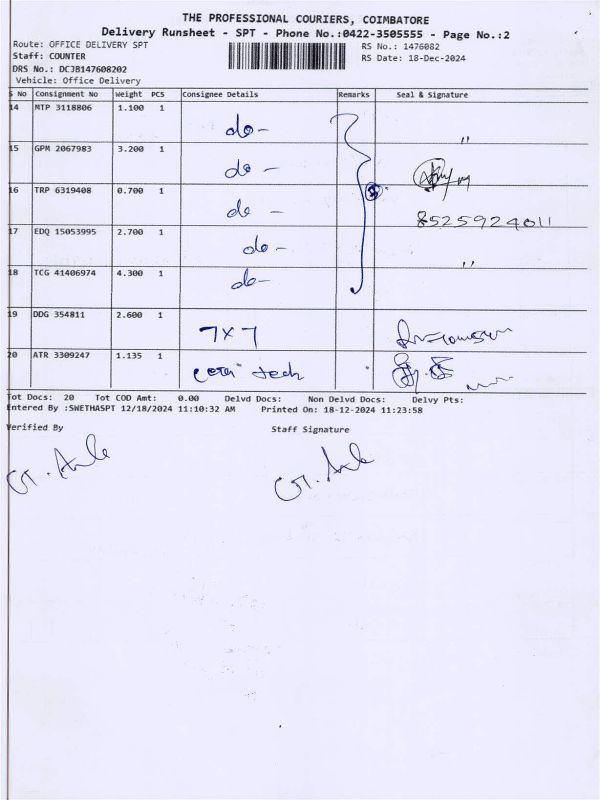 THE PROFESSIONAL COURIERS, COIMBATORE
Delivery Runsheet - SPT - Phone No.:0422-3505555 - Page No.:2
Route: OFFICE DELIVERY SPT
RS No.: 1476082
Staff: COUNTER
RS Date: 18-Dec-2024
DRS No.: DCJB147608202
Vehicle: Office Delivery
S No Consignment No Weight PCS Consignee Details Remarks Seal & Signature
14 MTP 3118806 1.100 1 do - "
15 GPM 2067983 3.200 1 do -
16 TRP 6319408 0.700 1 do - 8525924011
17 EDQ 15053995 2.700 1 do - "
18 TCG 41406974 4.300 1 do-
19 DDG 354811 2.600 1 7x7
20 ATR 3309247 1.135 1 tech
Tot Docs: 20 Tot COD Amt: 0.00 Delvd Docs: Non Delvd Docs: Delvy Pts:
Entered By :SWETHASPT 12/18/2024 11:10:32 AM Printed On: 18-12-2024 11:23:58
Verified By Staff Signature